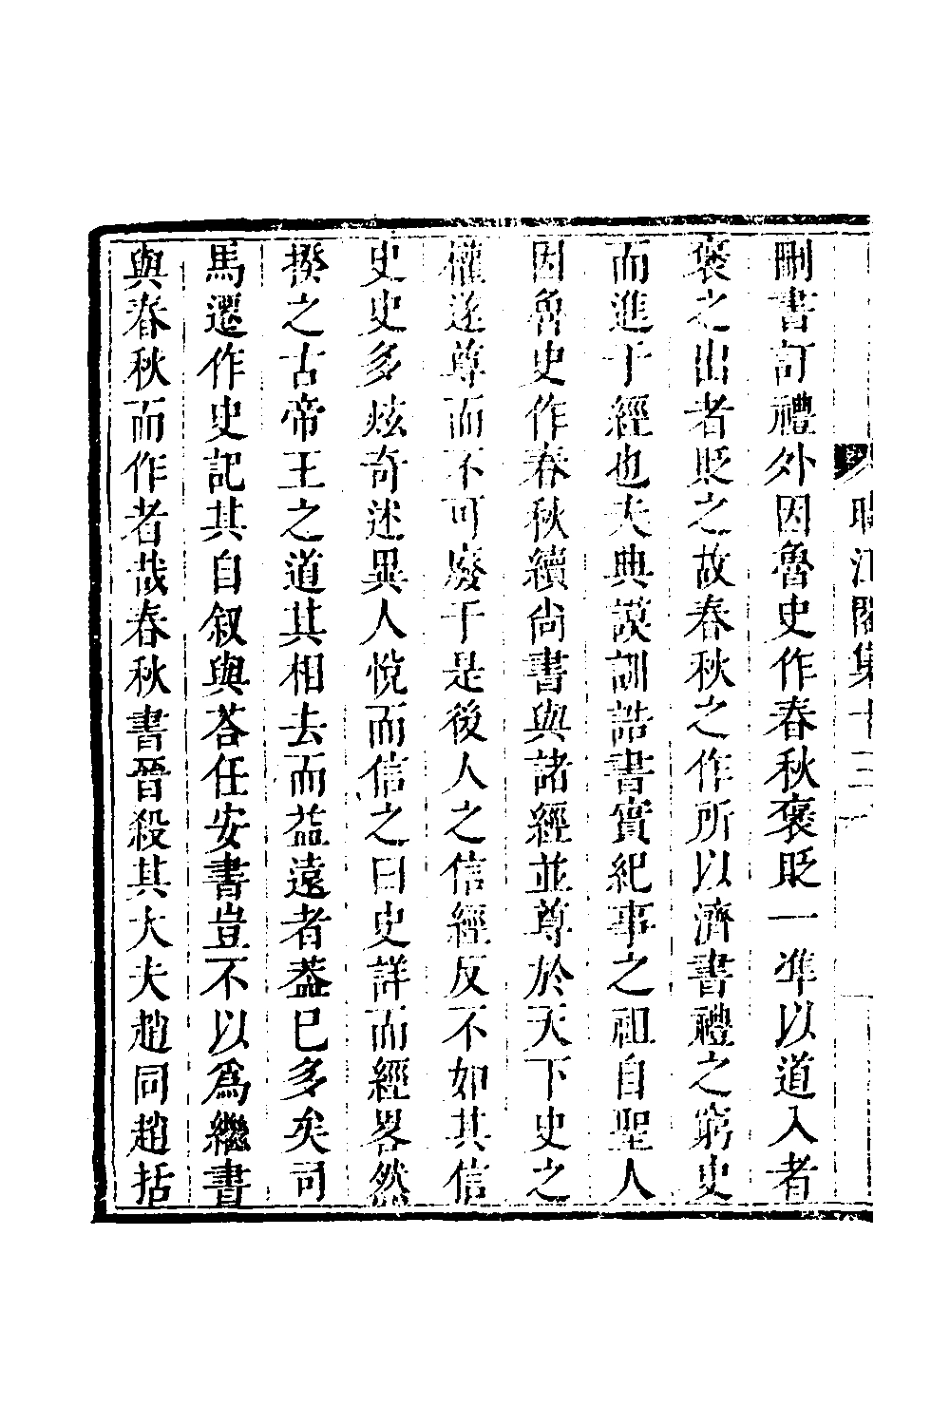 聽江閣集 十三
刪書訂禮外因魯史作春秋褒貶一準以道入者
褒之出者貶之故春秋之作所以濟書禮之窮史
而進于經也夫典謨訓誥書實紀事之祖自聖人
因魯史作春秋續尙書與諸經並尊於天下史之
權遂尊而不可廢于是後人之信經反不如其信
史史多炫奇述異人悅而信之曰史詳而經畧然
揆之古帝王之道其相去而益遠者葢巳多矣司
馬遷作史記其自叙與荅任安書豈不以爲繼書
與春秋而作者哉春秋書晉殺其大夫趙同趙括